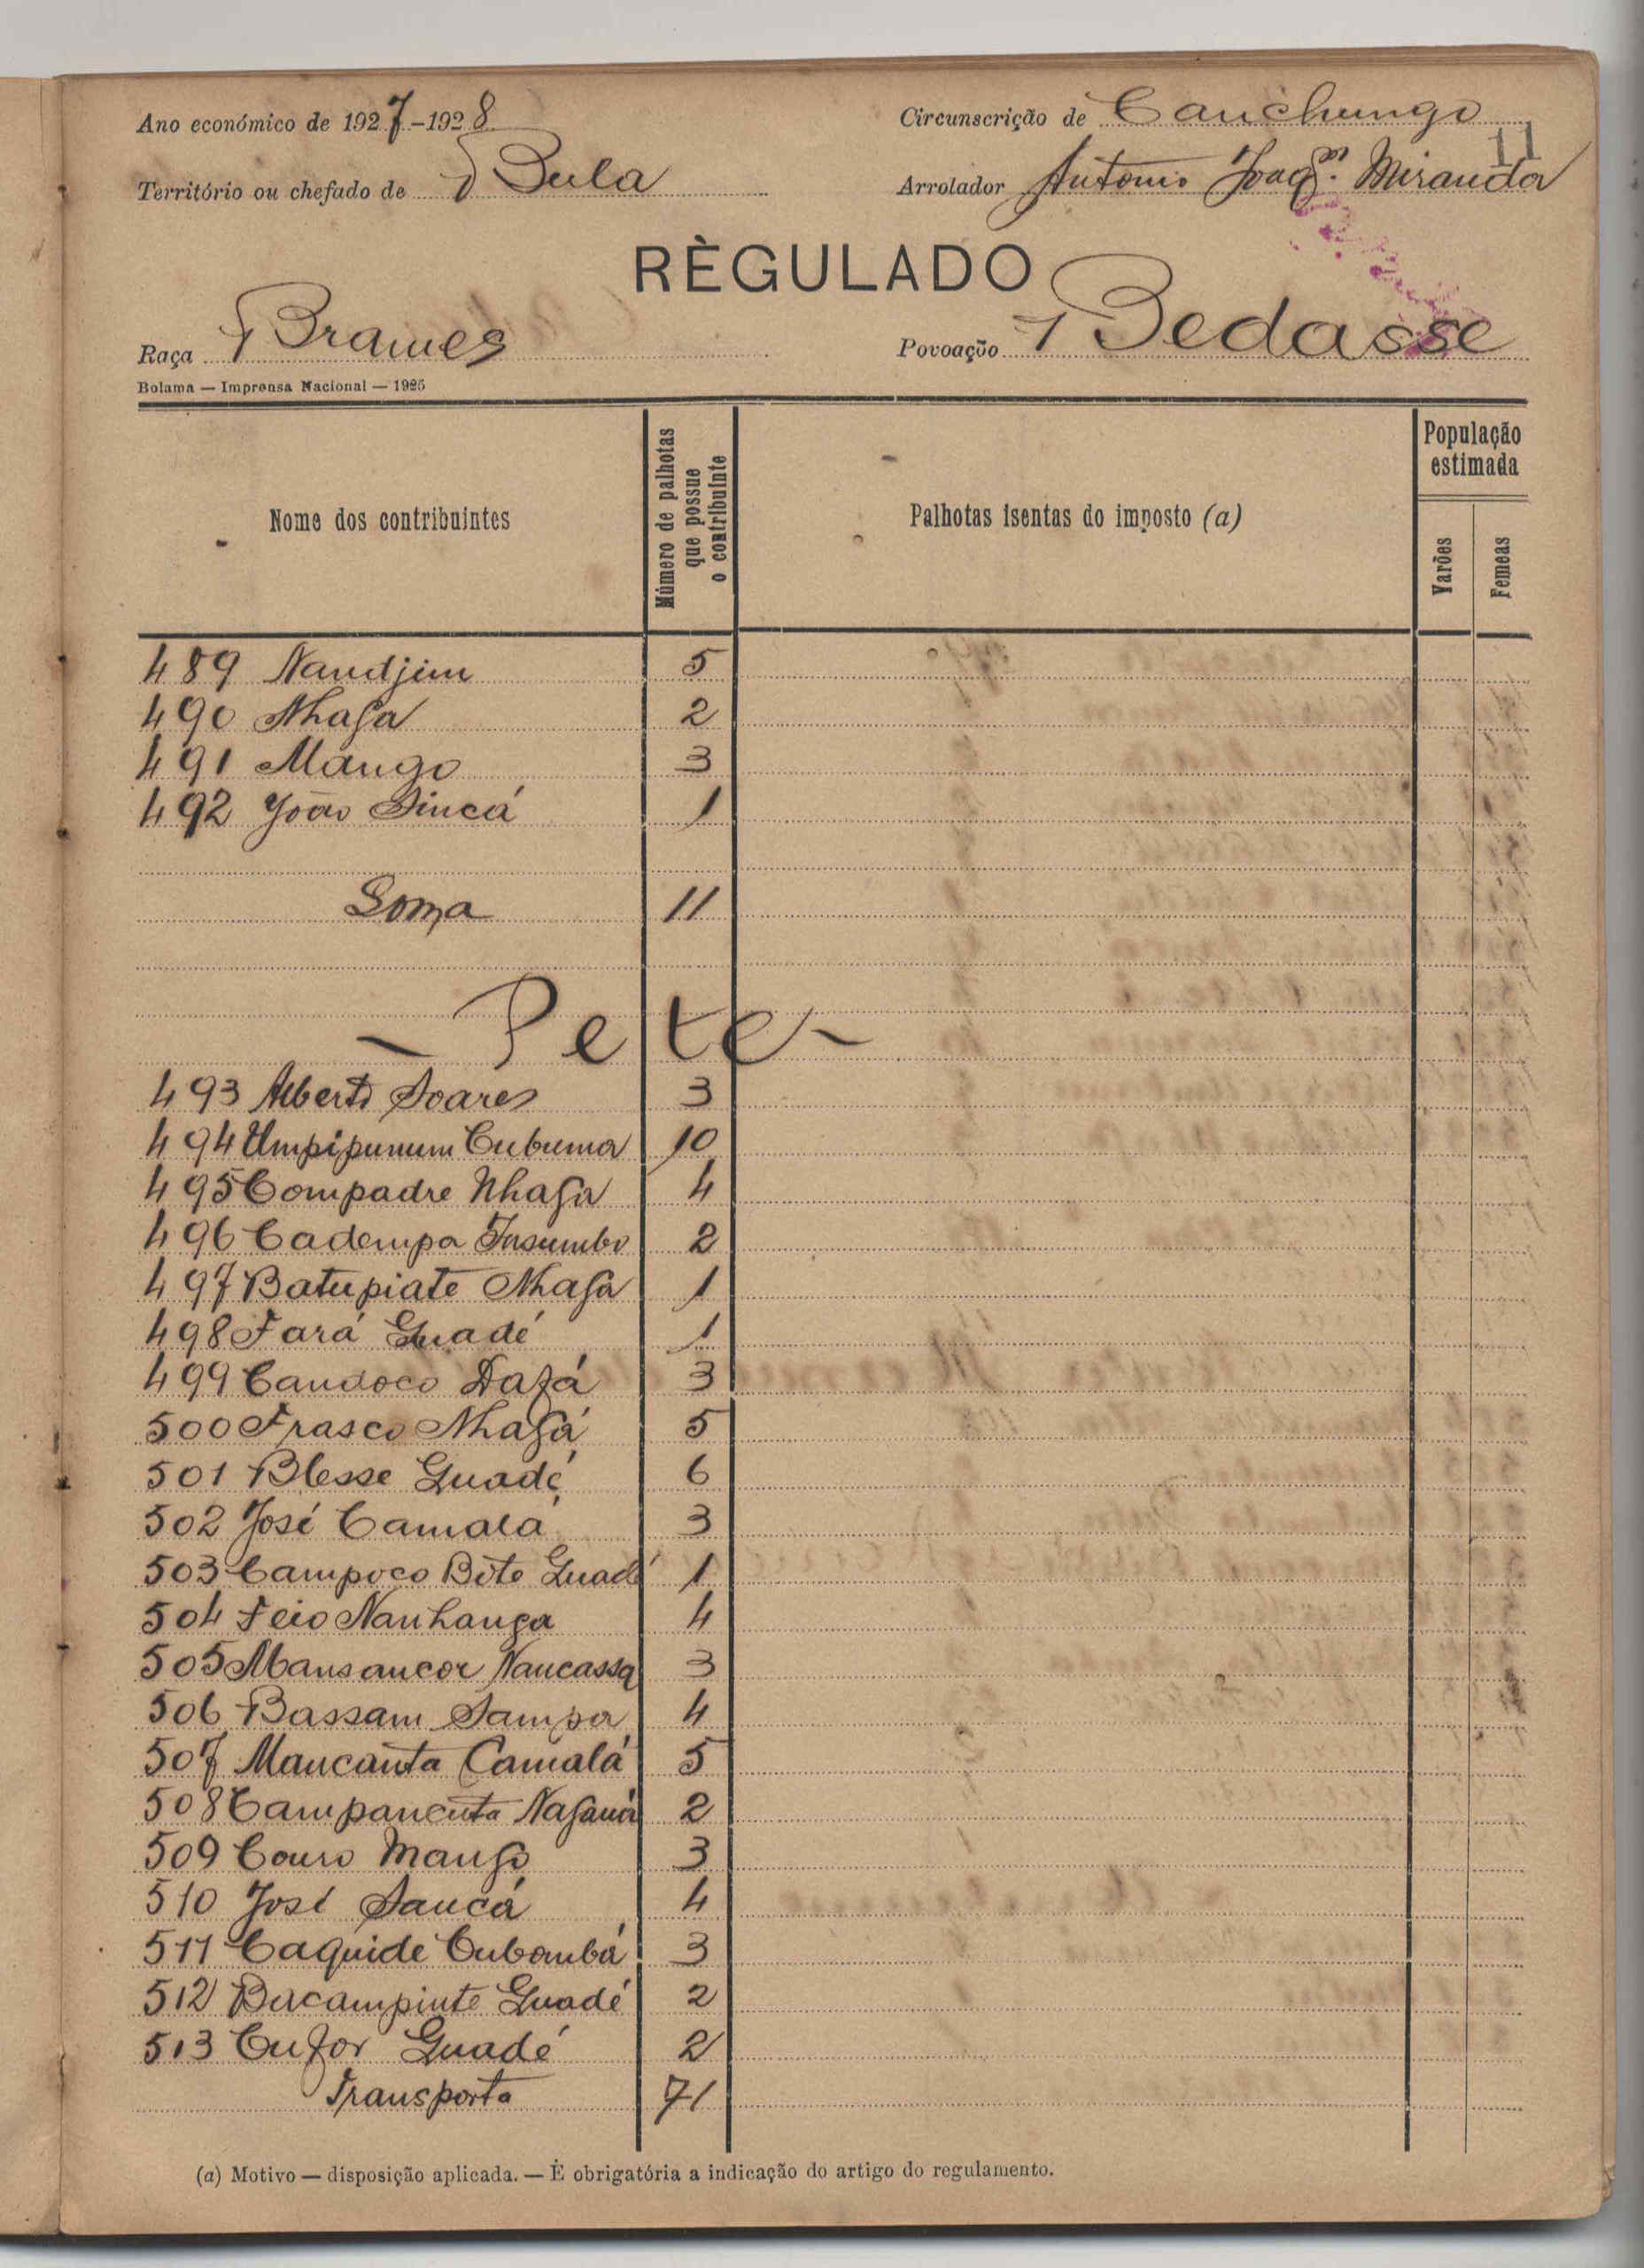 Ano económico de 1927-1928
Circunscrição de Canchungo
11
Território ou chefado de Bula
Arrolador Antonio Joaqm. Miranda
RÈGULADO
Raça Brames
Povoação Bedasse
Bolama — Imprensa Nacional — 1925
Nome dos contribuintes
Número de palhotas que possue o contribuinte
Palhotas isentas do imposto (a)
População estimada
Varões
Femeas
489 Nandjim 5
490 Nhaga 2
491 Mango 3
492 João Sincá 1
Soma 11
- Pete -
493 Alberto Soares 3
494 Umpipunum Cubuma 10
495 Compadre Nhaga 4
496 Cadempa Insumbo 2
497 Batupiate Nhaga 1
498 Fará Guadé 1
499 Candoco Dafá 3
500 Frasco Nhagá 5
501 Blesse Guadé 6
502 José Camalá 3
503 Campoco Bóte Guadé 1
504 Feio Nanhanga 4
505 Mansancor Naucassa 3
506 Bassam Sampa 4
507 Maucanta Camalá 5
508 Campancuta Nagana 2
509 Couro Mango 3
510 José Sancá 4
511 Caquide Cubombá 3
512 Bacampinte Guadé 2
513 Cufor Guadé 2
Transporta 71
(a) Motivo — disposição aplicada. — É obrigatória a indicação do artigo do regulamento.